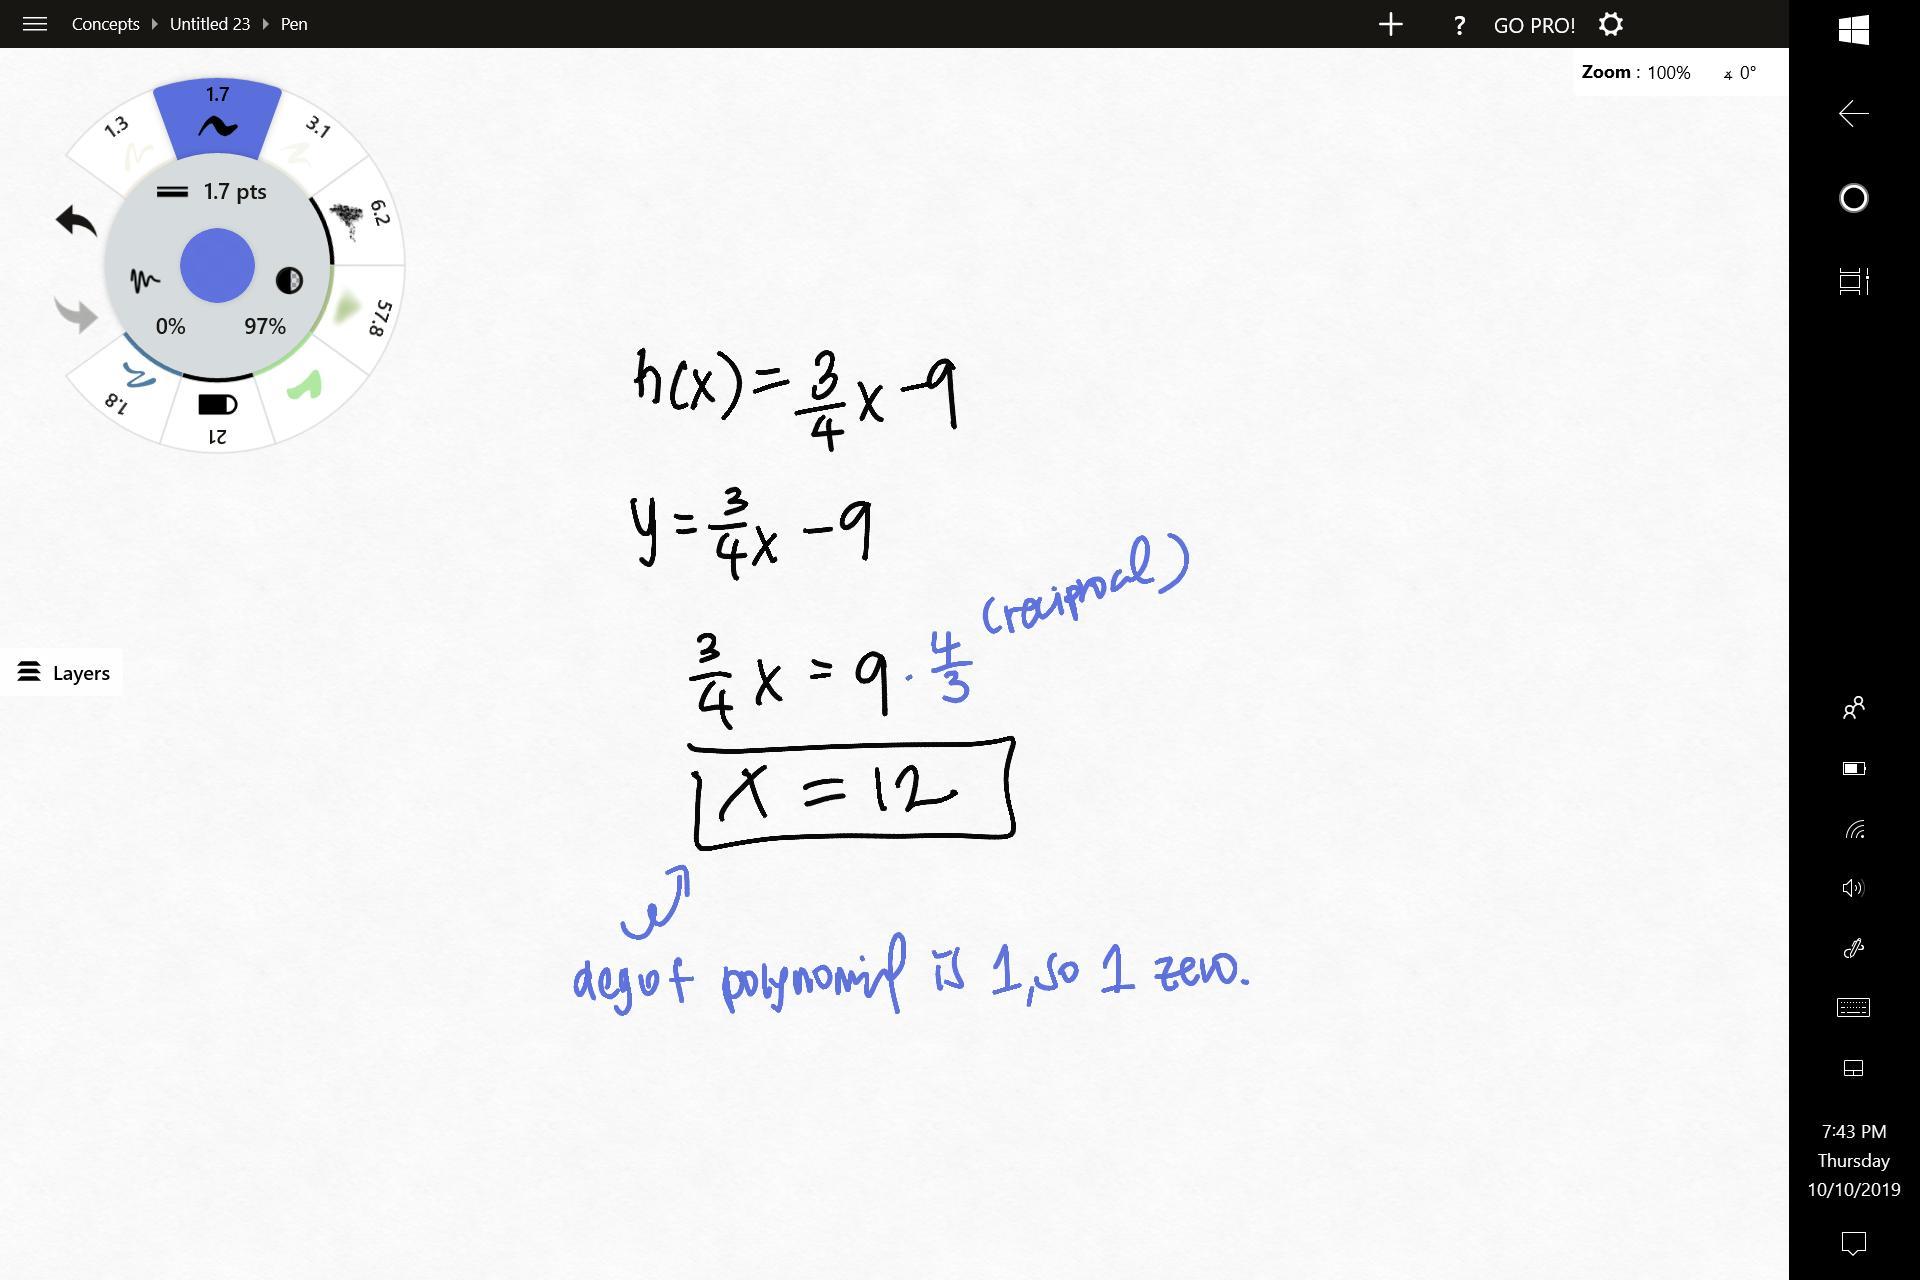 Concepts Untitled 23 Pen
? GO PRO!
Zoom : 100% 0°
1.7
1.3
3.1
1.7 pts
6.2
0% 97%
57.8
1.8
21
Layers
h(x) = 3/4 x - 9
y = 3/4 x - 9
(reciprocal)
3/4 x = 9 · 4/3
x = 12
deg of polynomial is 1, so 1 zero.
7:43 PM
Thursday
10/10/2019